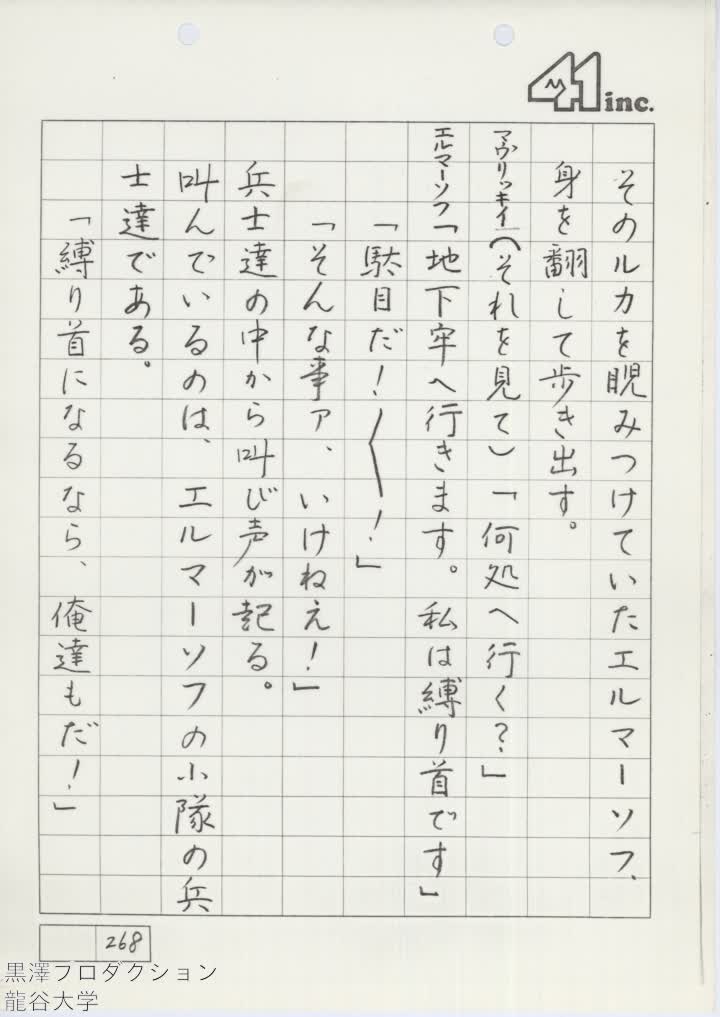 41 inc.
そのルカを睨みつけていたエルマーソフ、
身を翻して歩き出す。
マヴリッキイ(それを見て)「何処へ行く?」
エルマーソフ「地下牢へ行きます。私は縛り首です」
「駄目だ!〱!」
「そんな事ァ、いけねえ!」
兵士達の中から叫び声が起る。
叫んでいるのは、エルマーソフの小隊の兵
士達である。
「縛り首になるなら、俺達もだ!」
268
黒澤プロダクション
龍谷大学